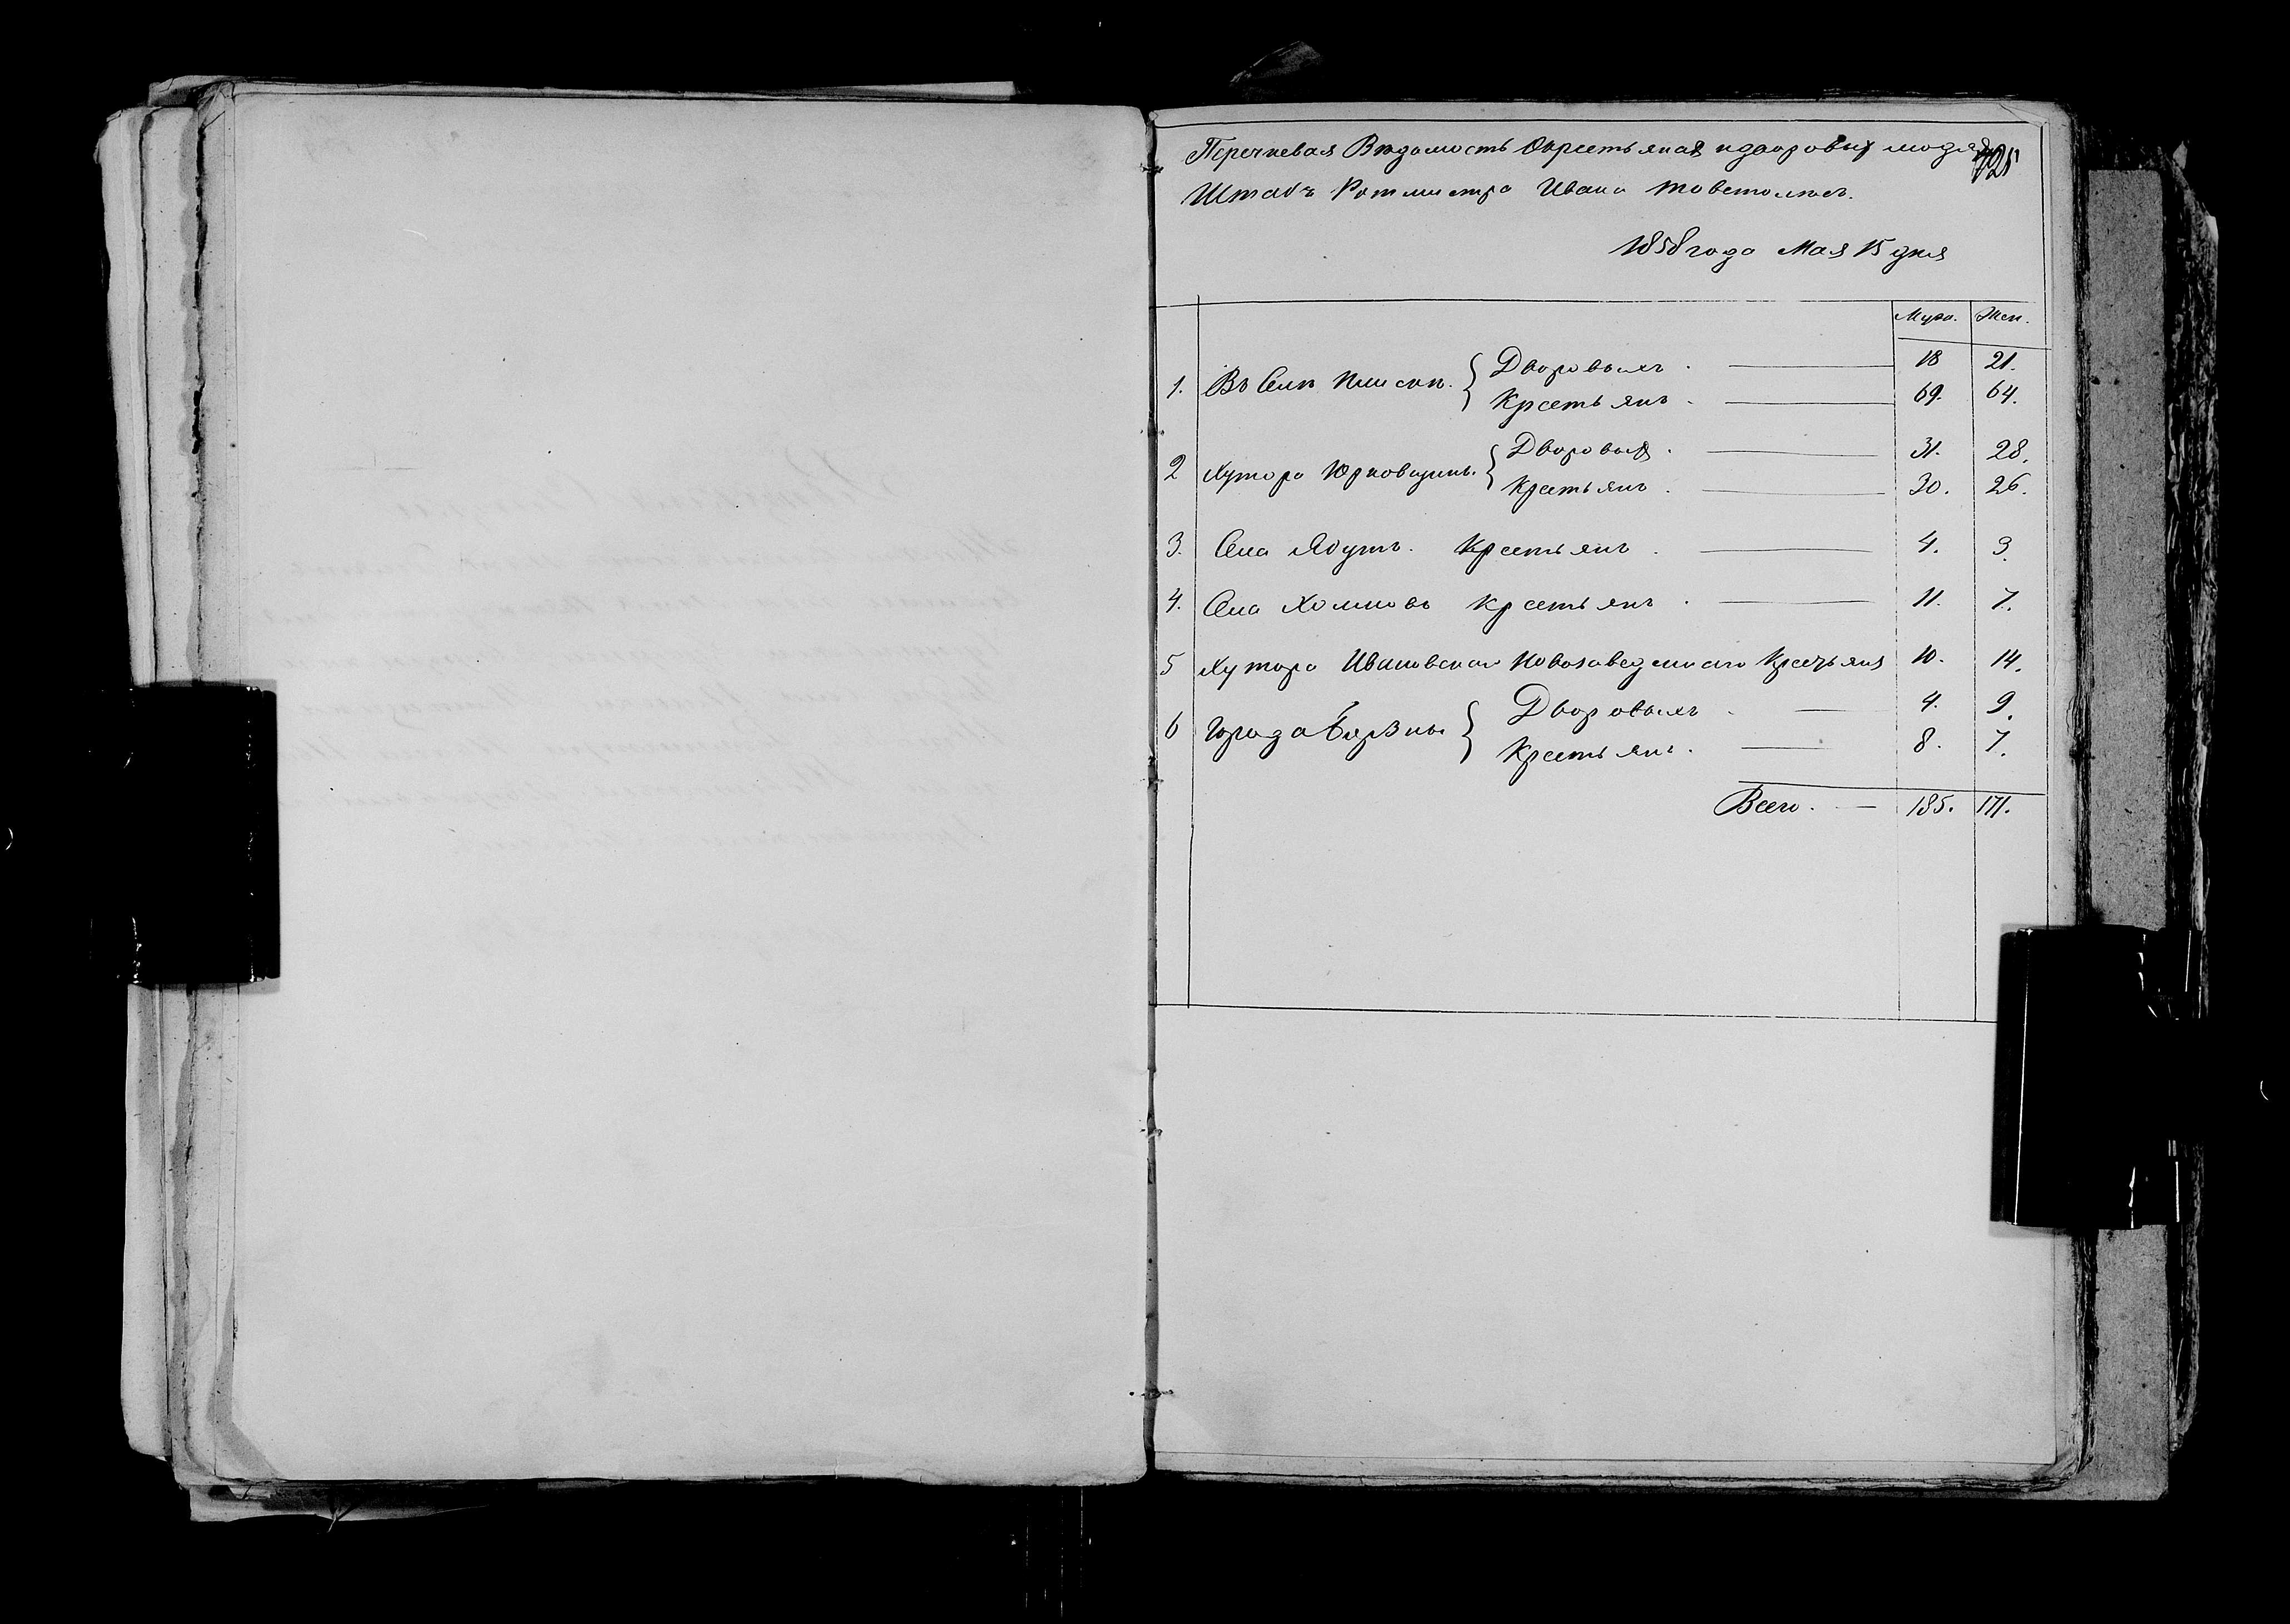 Перечневая Ведомость Окрестьянах идворовых людях
Штабъ Ротмистра Ивана Товстолеса.
1858 года Мая 15 дня
Муж. Жен.
1. Въ Селе { Дворовыхъ . — 18 21.
Крестьянъ . — 69. 64.
2 Хутора Юрковщины. { Дворовыхъ . — 31. 28.
Крестьянъ . — 30. 26.
3. Села Ядутъ. Крестьянъ . — 4. 3.
4. Села Холмовъ Крестьянъ . — 11. 7.
5 Хутора Ивановскаго Новозаведеннаго Крестьянъ 10. 14.
6 Города Борзны { Дворовыхъ . — 4. 9.
Крестьянъ . — 8. 7.
Всего . — 185. 171.